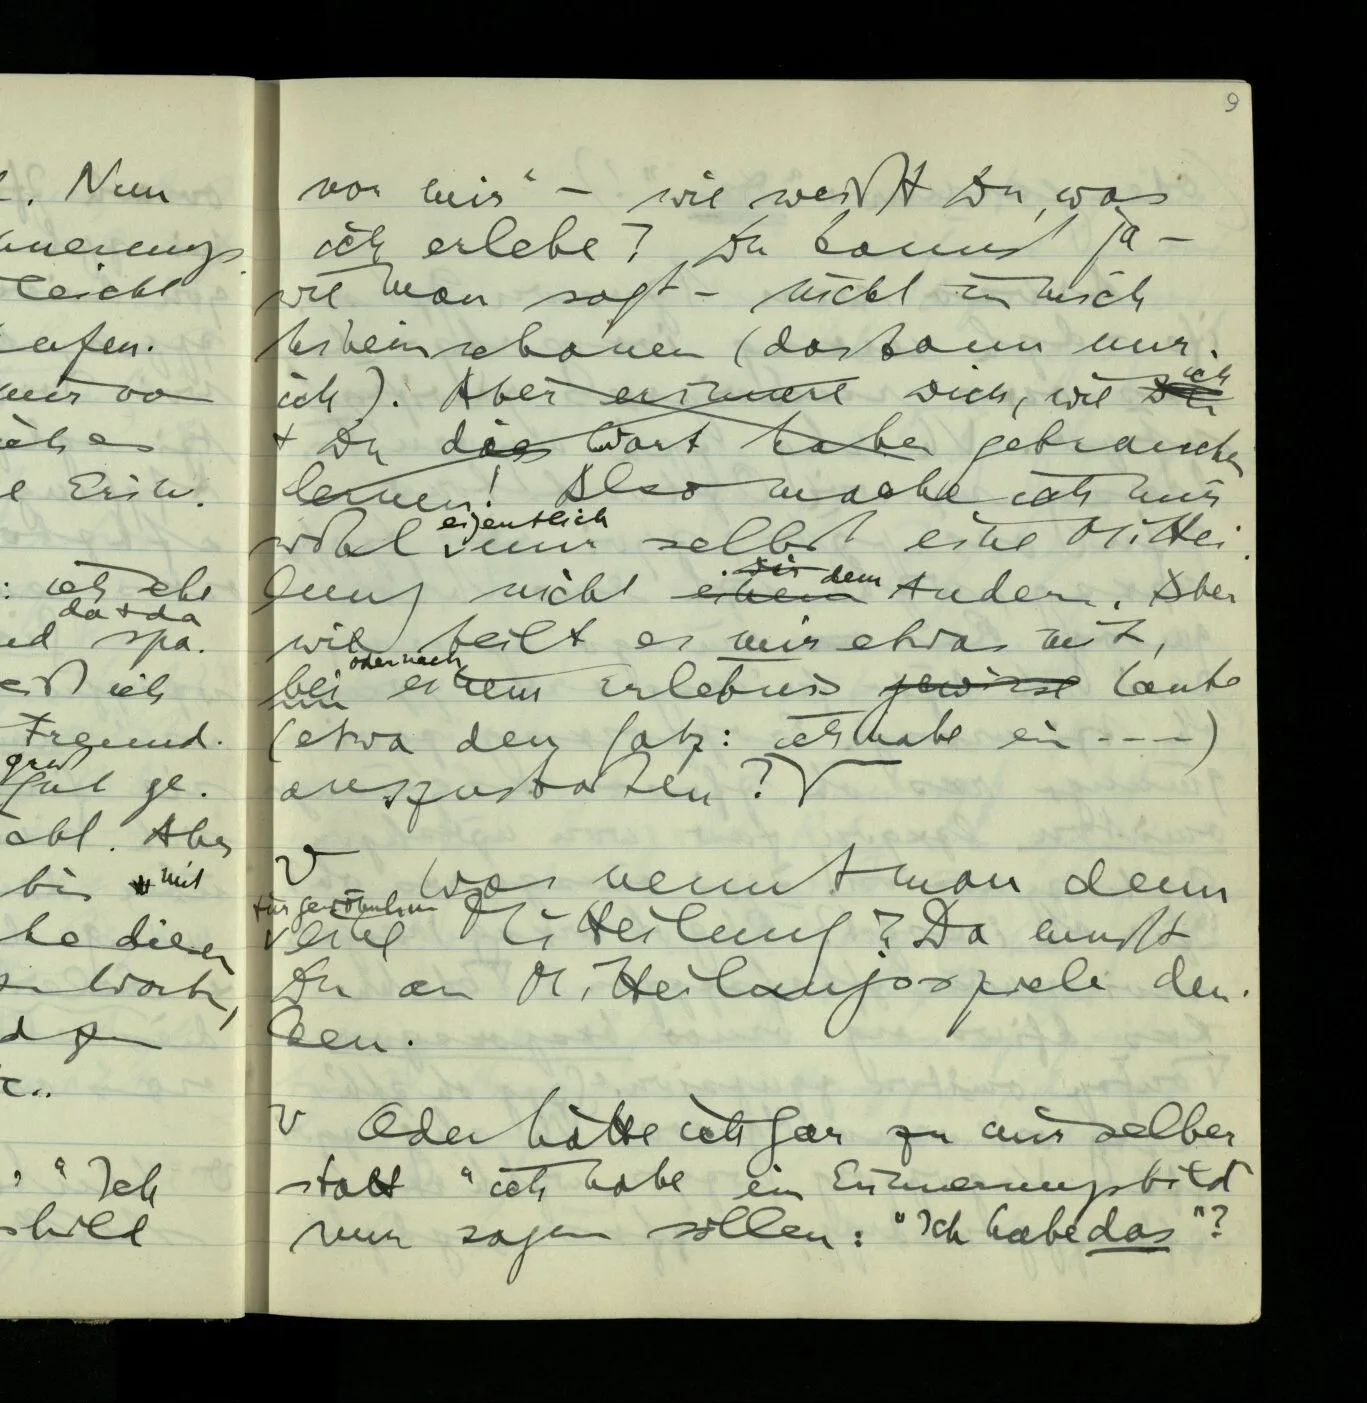 9
. Nun
nnerungs
leicht
aufen.
mir vo
ich es
e Erin.
: ich sehe
da + da
nd spa.
eiß ich
Freund.
gut ge.
cht. Aber
bis mit
be diesen
Worten,
d zu
etc..
, "Ich
sbild
vor mir" – wie weißt Du, was
ich erlebe? Du kannst ja –
wie man sagt – nicht in mich
hineinschauen (das kann nur
ich). Aber erinnere Dich, wie ich
+ Du das Wort haben gebrauchen
lernen! Also mache ich mir
eigentlich
wohl nur selbst eine Mittei
für dem
lung nicht einem Andern. Aber
wie teilt es mir etwas mit,
oder nach
bei einem Erlebnis gewisse Laute
(etwa den Satz: ich habe ein ----)
auszustoßen?
V Was nennt man denn
für gewöhnlich
eine Mitteilung? Da mußt
Du an Mitteilungsspiele den.
ken.
V Oder hätte ich gar zu mir selber
statt "ich habe ein Erinnerungsbild
nur sagen sollen: "Ich habe das"?